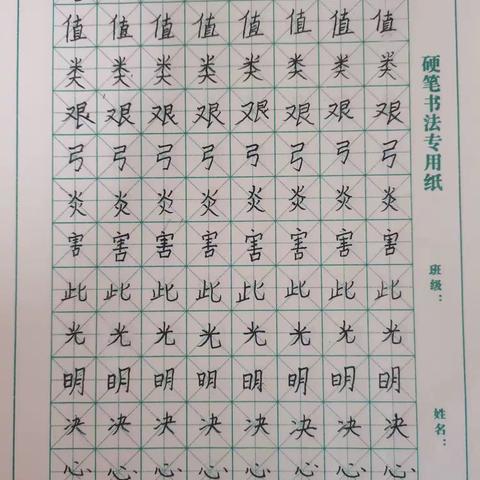 值值值值值值值值
类类类类类类类类
艰艰艰艰艰艰艰艰
弓弓弓弓弓弓弓弓
炎炎炎炎炎炎炎炎
害害害害害害害害
此此此此此此此此
光光光光光光光光
明明明明明明明明
决决决决决决决决
心心心心心心心心
硬笔书法专用纸
班级：
姓名：